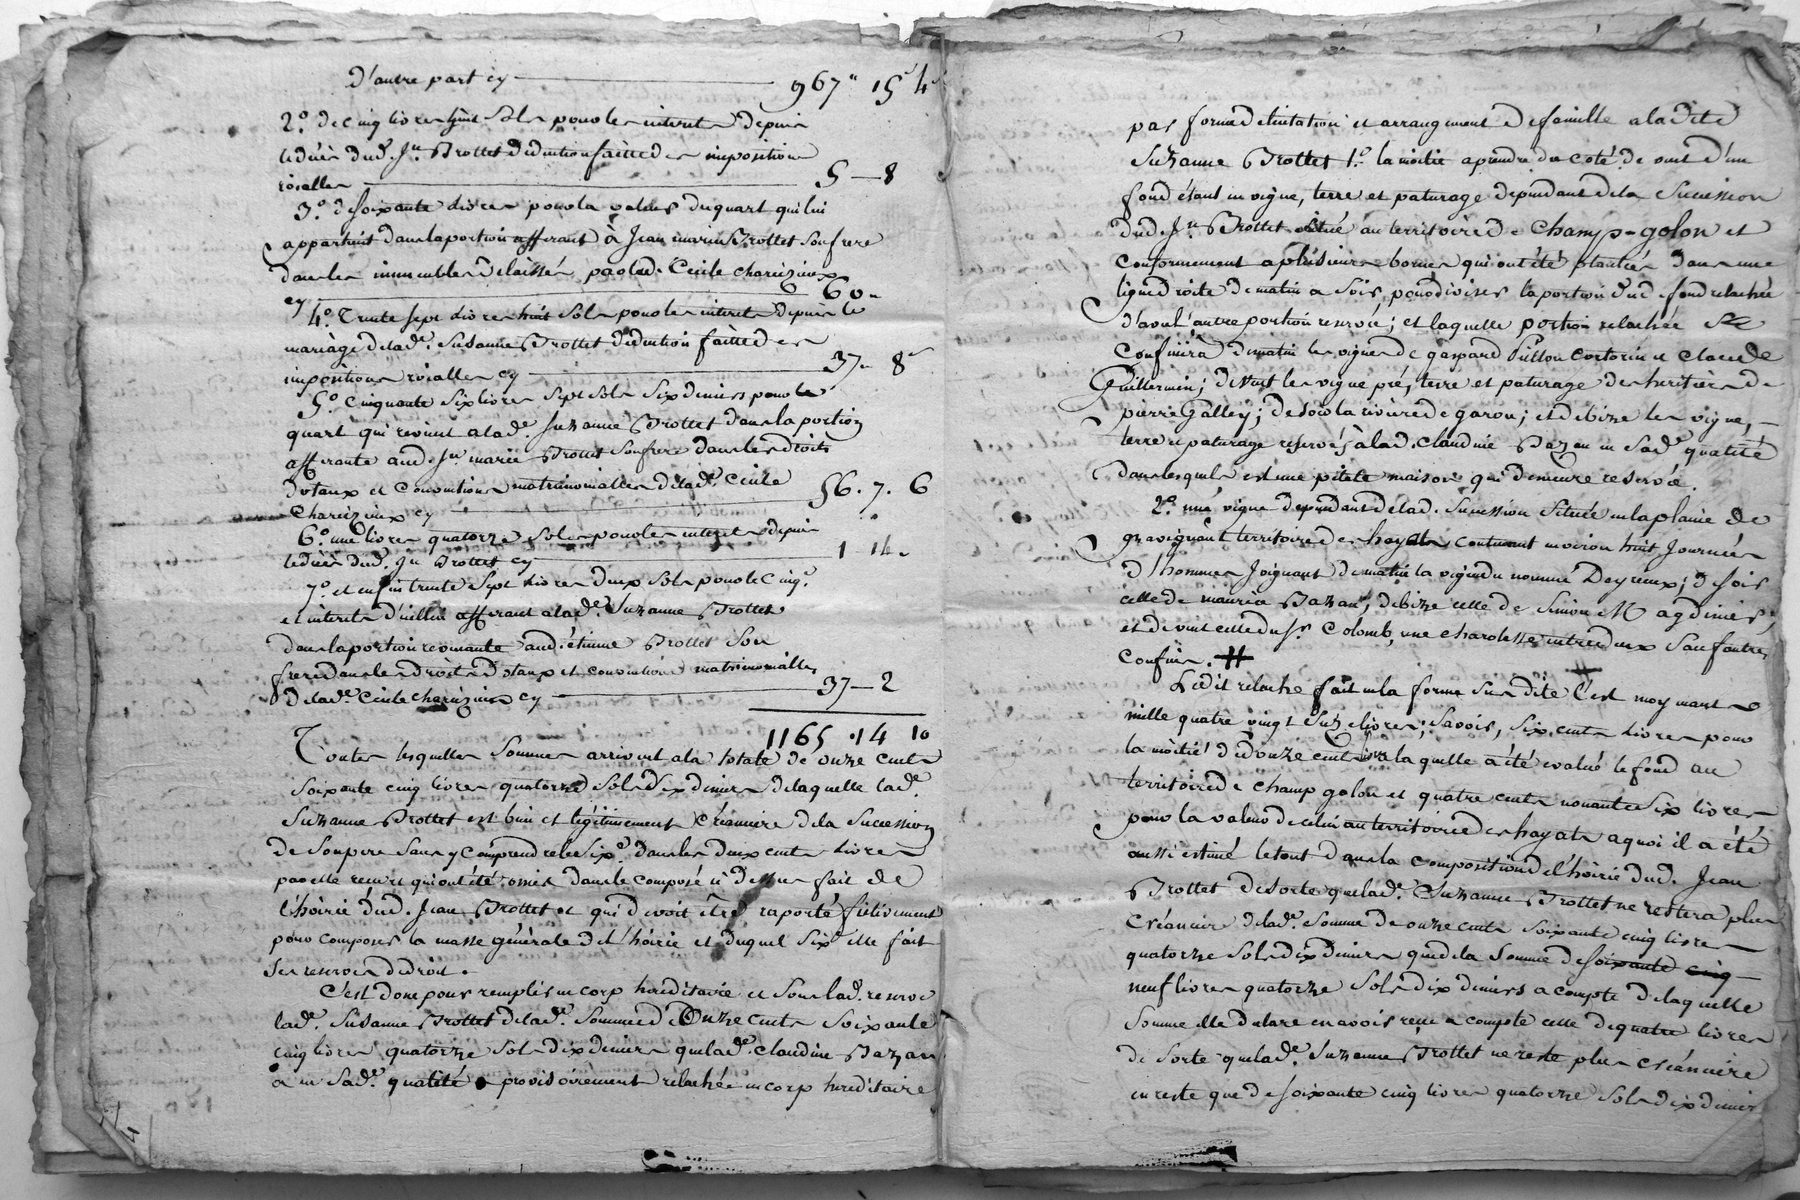 d'autre part cy 967" 15s 4d
2.o de cinq livres huit sols pour les interets depuis
le décès dud.t Jn Brottet déduction faitte des impositions
roialles 5 — 8
3.o de soixante livres pour la valeur du quart qui lui
appartient dans la portion afferant à Jean marie Brottet son frere
dans les immeubles delaissés par lad. Cécile Charézieux
cy 60 "
4.o Trente sept livres huit sols pour les interets depuis le
mariage de lad.e Susanne Brottet déduction faitte des
impositions roialles cy 37 " 8s
5.o cinquante six livres sept sols six deniers pour le
quart qui revient a lad.e Suzanne Brottet dans la portion
afferante aud. Jn marie Brottet son frere dans les droits
dotaux et conventions matrimonialles de lad.e Cécile
Charézieux cy 56 . 7 . 6
6.o une livre quatorze sols pour les interets depuis
le décès dud.t Jn Brottet cy 1 14 "
7.o et enfin trente sept livres deux sols pour le cinq.e
et interets d'icelui afferant a lad.e Suzanne Brottet
dans la portion revenante aud. étienne Brottet son
frere dans les droits dotaux et conventions matrimonialles
de lad.e Cécile Charézieux cy 37 — 2
1165 . 14 10
Toutes lesquelles sommes arrivent a la totale de onze cents
soixante cinq livres quatorze sols dix deniers de laquelle lad.e
Suzanne Brottet est bien et légitimement créanciere de la succession
de son pere sans y comprendre le six.e dans les deux cents livres
par elle reçues qui ont été omis dans le composé ci dessus fait de
l'hoirie dud. Jean Brottet et qui devoit être raporté fictivement
pour composer la masse générale de l'hoirie et duquel six.e elle fait
ses reserves de droit.
C'est donc pour remplir en corp hereditaire et sous lad. reserve
lad.e Susanne Brottet de lad.e somme de Onze cents soixante
cinq livres quatorze sols dix deniers que lad.e Claudine Bazan
a en sad.e qualité provisoirement relachée en corp hereditaire
par forme d'elimitation et arrangement de famille a la dite
Suzanne Brottet 1.o la moitié a prendre du coté de vent d'un
fond étant en vigne, terre et paturage dependant de la succession
dud. Jn Brottet situé au territoire de Champ-golon et
conformement a plusieurs bornes qui ont été plantées dans une
ligne droite de matin a soir, pour diviser la portion dud. fond relachée
d'avec l'autre portion reservée; et laquelle portion relachée se
confinera de matin les vignes de gaspard et Claude
Guillermin; de vent les vigne pré, terre et paturage des heritiers de
pierre Galley; de soir la riviere de garon; et de bize les vigne,
terre et paturage reservés à lad. Claudine Bazan en sad.e qualité
dans lesquels est une pitite maison qui demeure reservée.
2.o une vigne dependant de lad. succession située en la plaine de
gravignant territoire des hayats, contenant environ huit journées
d'hommes joignant de matin la vigne du nommé Deyrieux; de soir
celle de maurice Bazan, de bize celle de Simon Magdinier,
et de vent celle du sr. Colomb, une charolesse entre deux sauf autres
confins. #
Ledit relache fait en la forme sus dite c'est moyenant
mille quatre vingt seize livres; savoir, six cents livres pour
la moitié de douze cents livres a laquelle a été evalué le fond au
territoire de champ golon et quatre cents nonante six livres
pour la valeur de celui au territoire des hayats a quoi il a été
aussi estimé le tout dans la composition de l'hoirie dud. Jean
Brottet de sorte que lad.e Suzanne Brottet ne restera plus
créancier de lad.e somme de onze cents soixante cinq livres
quatorze sols dix deniers que de la somme de soixante cinq
neuf livres quatorze sols dix deniers a compte de laquelle
somme elle declare en avoir reçu a compte celle de quatre livres
de sorte que lad.e Suzanne Brottet ne reste plus créanciere
en reste que de soixante cinq livres quatorze sols dix deniers